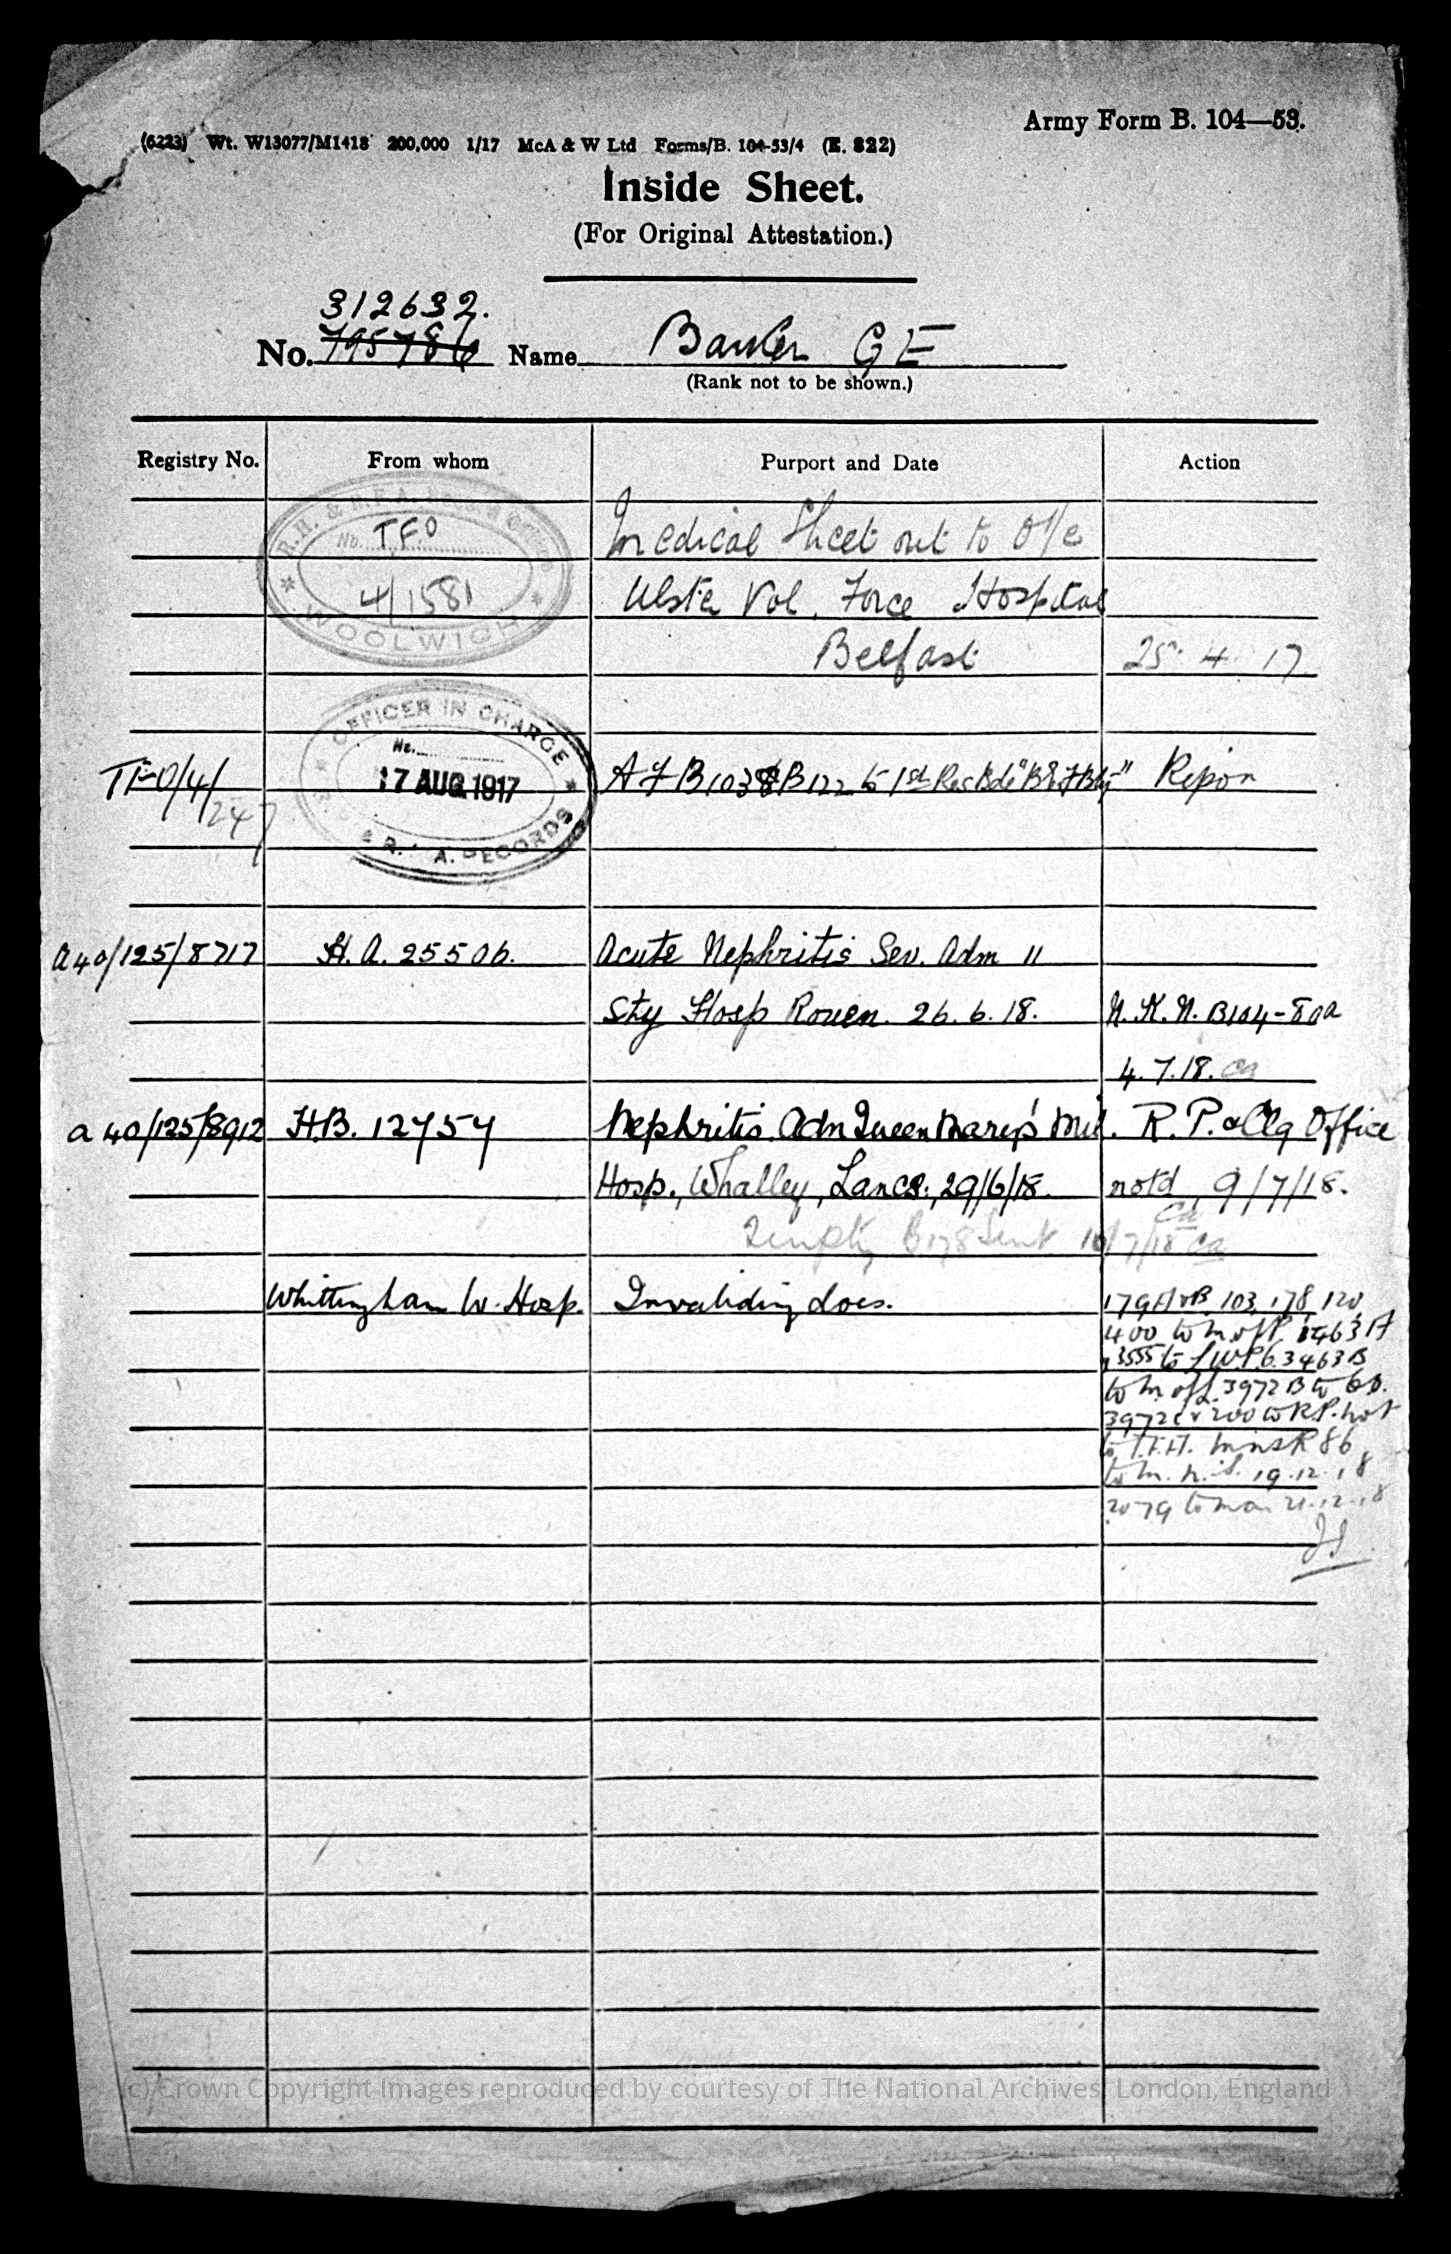 Army Form B. 104—53.
(6223) Wt. W13077/M1418 200,000 1/17 McA & W Ltd Forms/B. 104-53/4 (E. 822)
Inside Sheet.
(For Original Attestation.)
312632.
No. 795786 Name G E
(Rank not to be shown.)
Registry No. From whom Purport and Date Action
R.H. & R.F.A. Office
No. TFO
4/1581
WOOLWICH
Medical Sheet out to O/c
Ulster Vol. Force Hospital
Belfast 25. 4. 17
OFFICER IN CHARGE
No.
17 AUG 1917
R. A. RECORDS
TFO/4/
247
A F B 103 & B 122 to 1st Res Bde Ripon
a 40/125/8717 H. A. 25506. Acute Nephritis Sev. Adm 11
Sty Hosp Rouen. 26. 6. 18. N. K. N. B104-80a
4. 7. 18. ca
a 40/125/8912 H.B. 12757 Nephritis. Adm Queen Mary's Mil. R. P. & Clg Office
Hosp., Whalley, Lancs., 29/6/18. notd 9/7/18.
ca
B178 Sent 10/7/18 ca
Whittingham W. Hosp. Invaliding docs. 179 103, 178, 120,
400 to 3463A
3555 to 3463B
to 3972B to
3972c 200 to RP. not
to R 86
to 19.12.18
2079 to 21.12.18
(c) Crown Copyright Images reproduced by courtesy of The National Archives, London, England